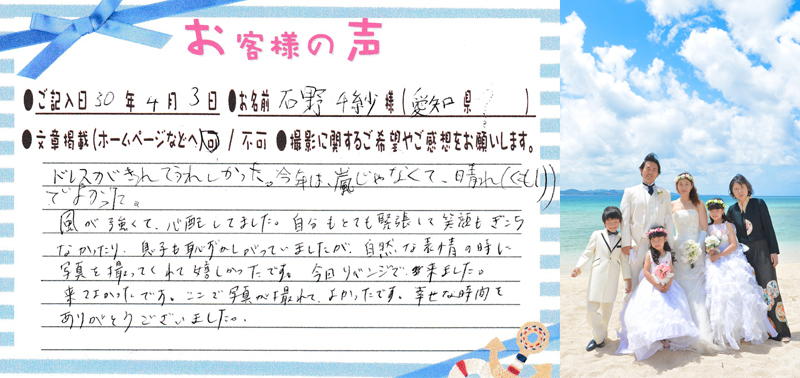 お客様の声
●ご記入日 30 年 4 月 3 日 ●お名前 石野 千紗 様 (愛知 県 )
●文章掲載(ホームページなどへ)可 / 不可 ●撮影に関するご希望やご感想をお願いします。
ドレスがきれてうれしかった。今年は、嵐じゃなくて、晴れ(くもり)
でよかった。
風が強くて、心配してました。自分もとても緊張して笑顔もぎこち
なかったり、息子も恥ずかしがっていましたが、自然な表情の時に
写真を撮ってくれて嬉しかったです。今回リベンジで来ました。
来てよかったです。ここで写真が撮れて、よかったです。幸せな時間を
ありがとうございました。